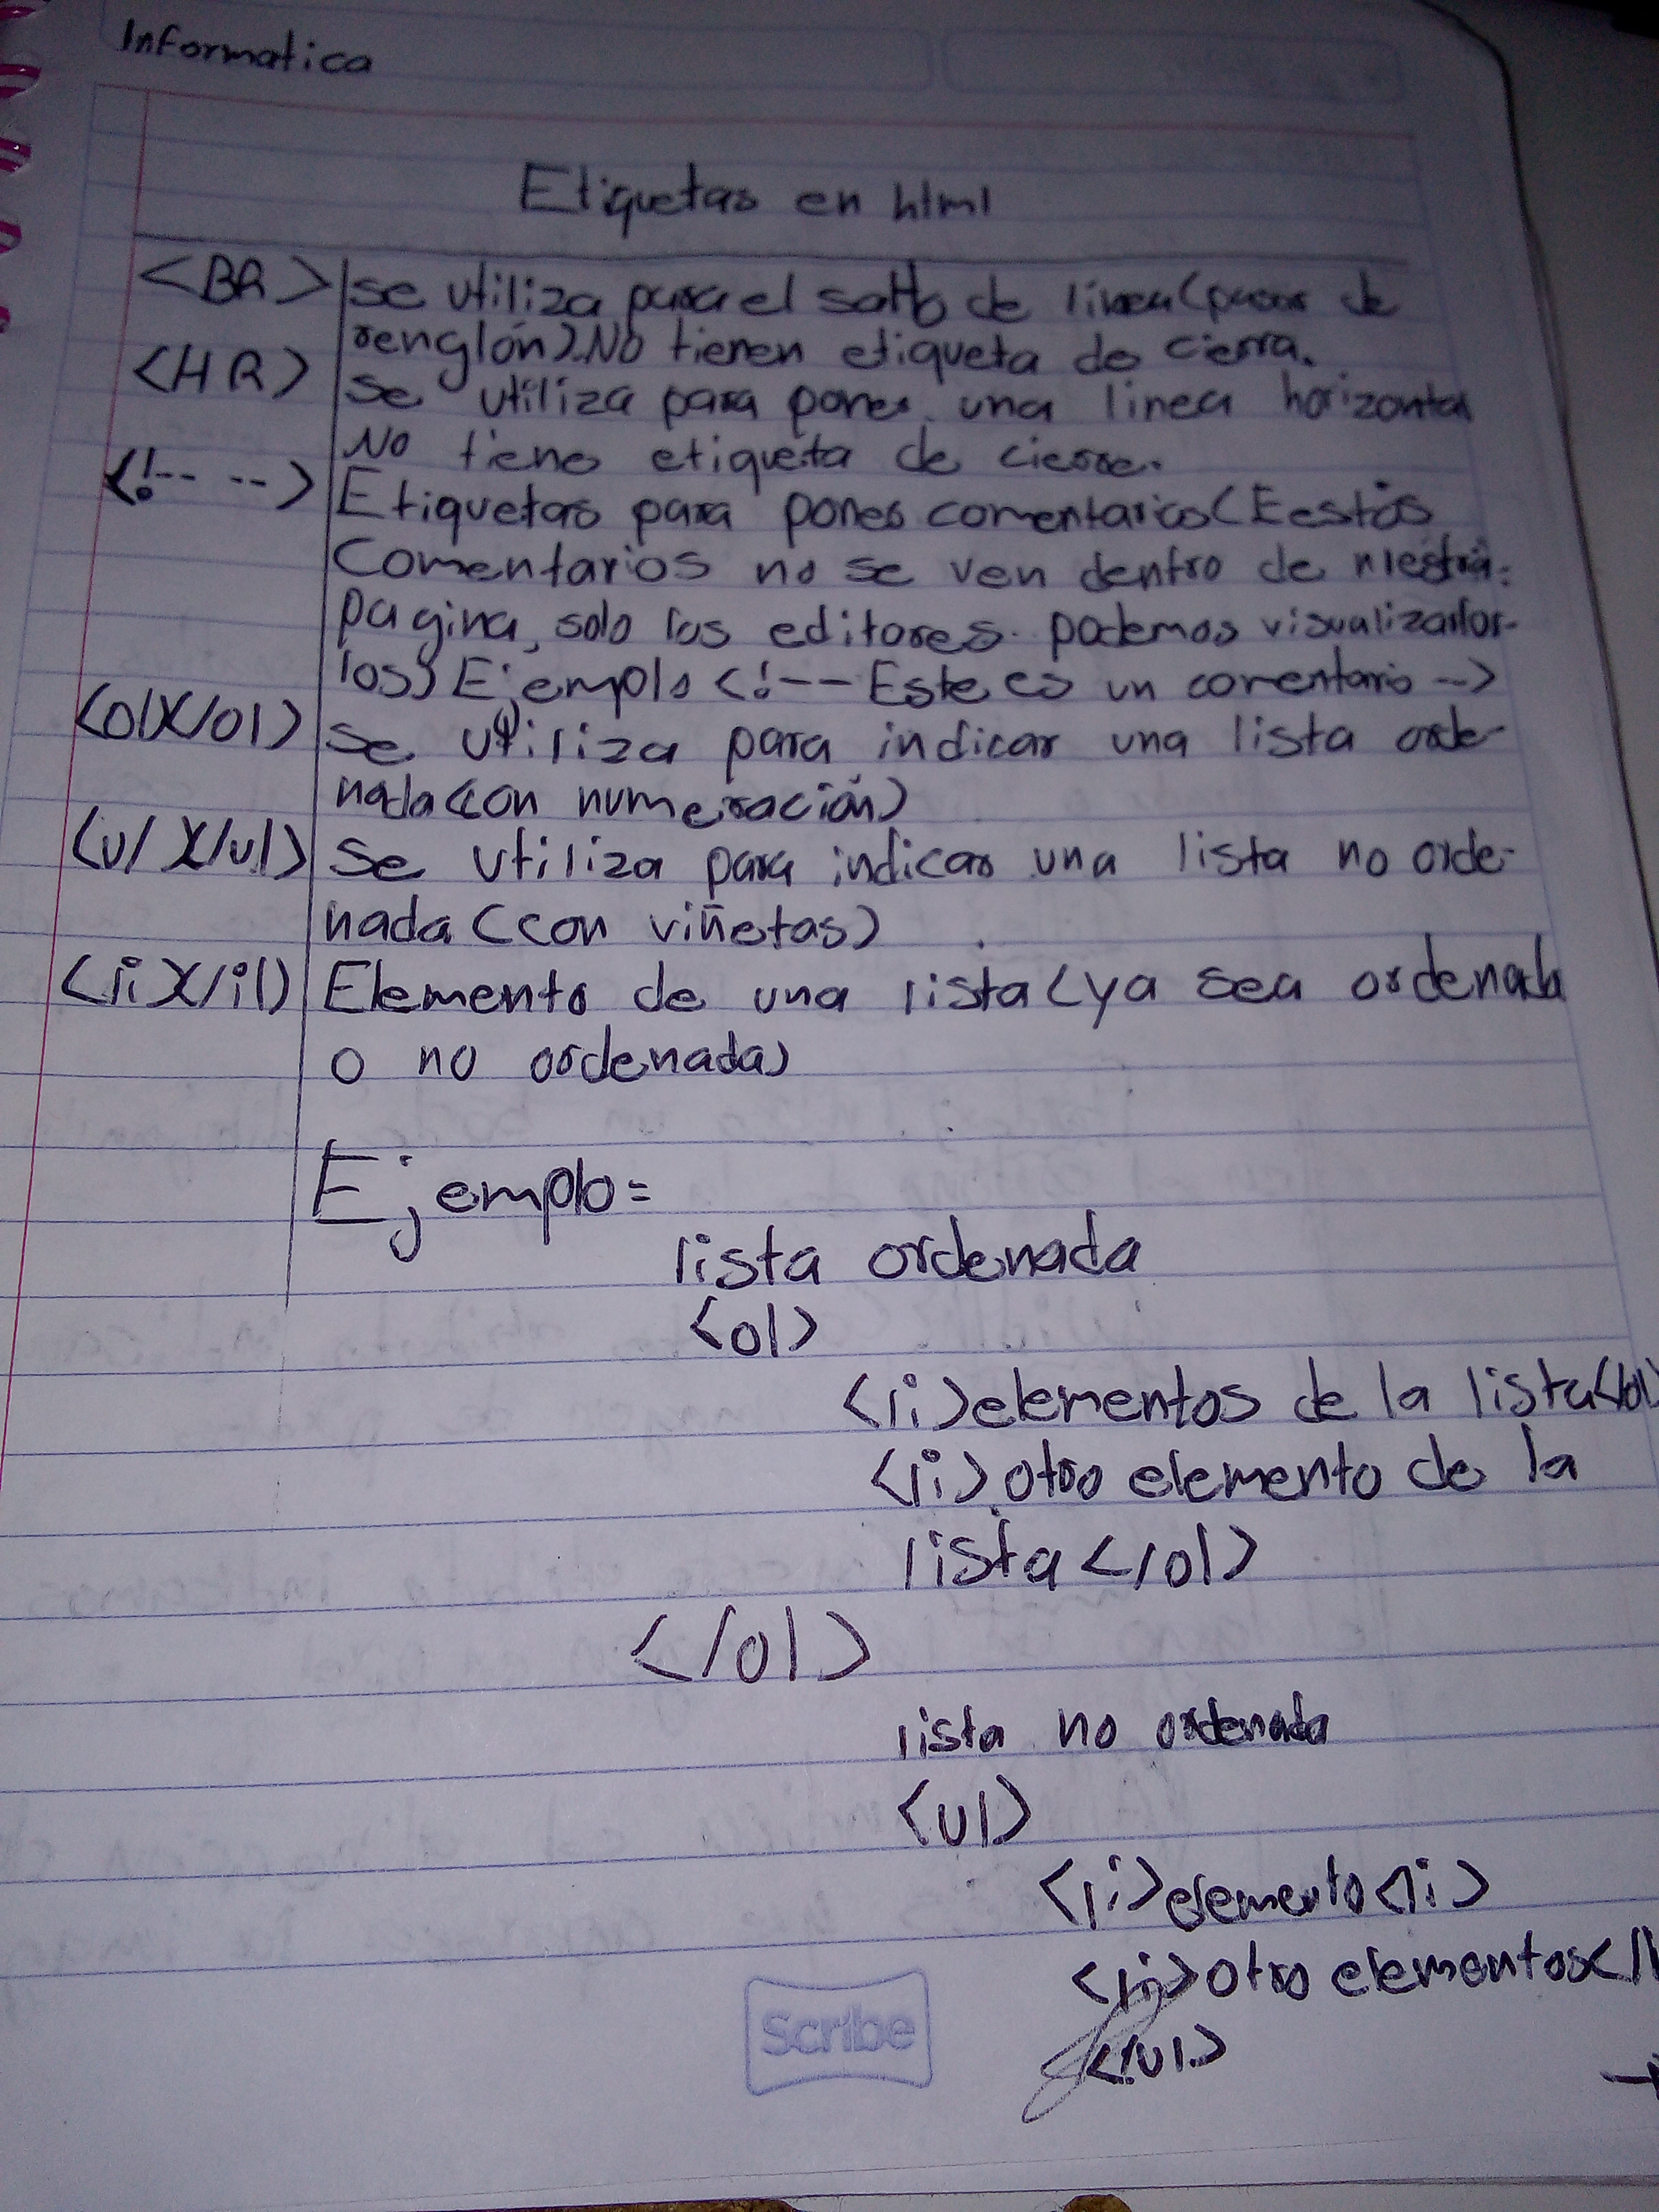 Informatica
Etiquetas en html
<BR> se utiliza para el salto de linea (pasar de
renglón). No tienen etiqueta de cierra.
<HR> se utiliza para poner una linea horizontal
No tiene etiqueta de cierre.
<!-- --> Etiquetas para poner comentarios (Eestos
Comentarios no se ven dentro de niestra
pagina, solo los editores podemos visualizarlos-
los) Ejemplo <!-- Este es un comentario -->
<ol></ol> se utiliza para indicar una lista orde-
nada (con numeración)
<ul></ul> se utiliza para indicar una lista no orde-
nada (con viñetas)
<li></il> Elemento de una lista (ya sea ordenada
o no ordenada)
Ejemplo=
lista ordenada
<ol>
<li>elementos de la lista</ol>
<li> otro elemento de la
lista </ol>
</ol>
lista no ordenada
<ul>
<li>elemento<li>
<li>otro elementos</l
</ul>
Scribe